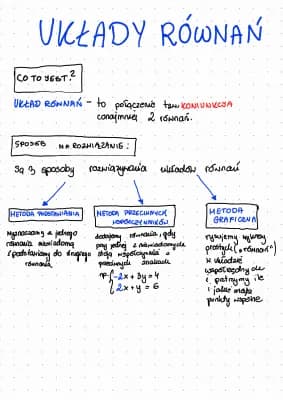 UKŁADY RÓWNAŃ
CO TO JEST?
UKŁAD RÓWNAŃ - to połączenie tzw. KONIUNKCJA
conajmniej 2 równań.
SPOSÓB NA ROZWIĄZANIE:
Są 3 sposoby rozwiązywania układów równań
METODA PODSTAWIANIA
wyznaczamy z jednego
równania niewiadomą
i podstawiamy do drugiego
równania.
METODA PRZECIWNYCH
WSPÓŁCZYNNIKÓW
dodajemy równania, gdy
przy jednej z niewiadomych
stoją współczynniki o
przeciwnych znakach
np. {-2x + 3y = 4
{2x + y = 6
METODA
GRAFICZNA
rysujemy wykresy
prostych („równań”)
w układzie
współrzędnych
i patrzymy ile
i jakie mają
punkty wspólne